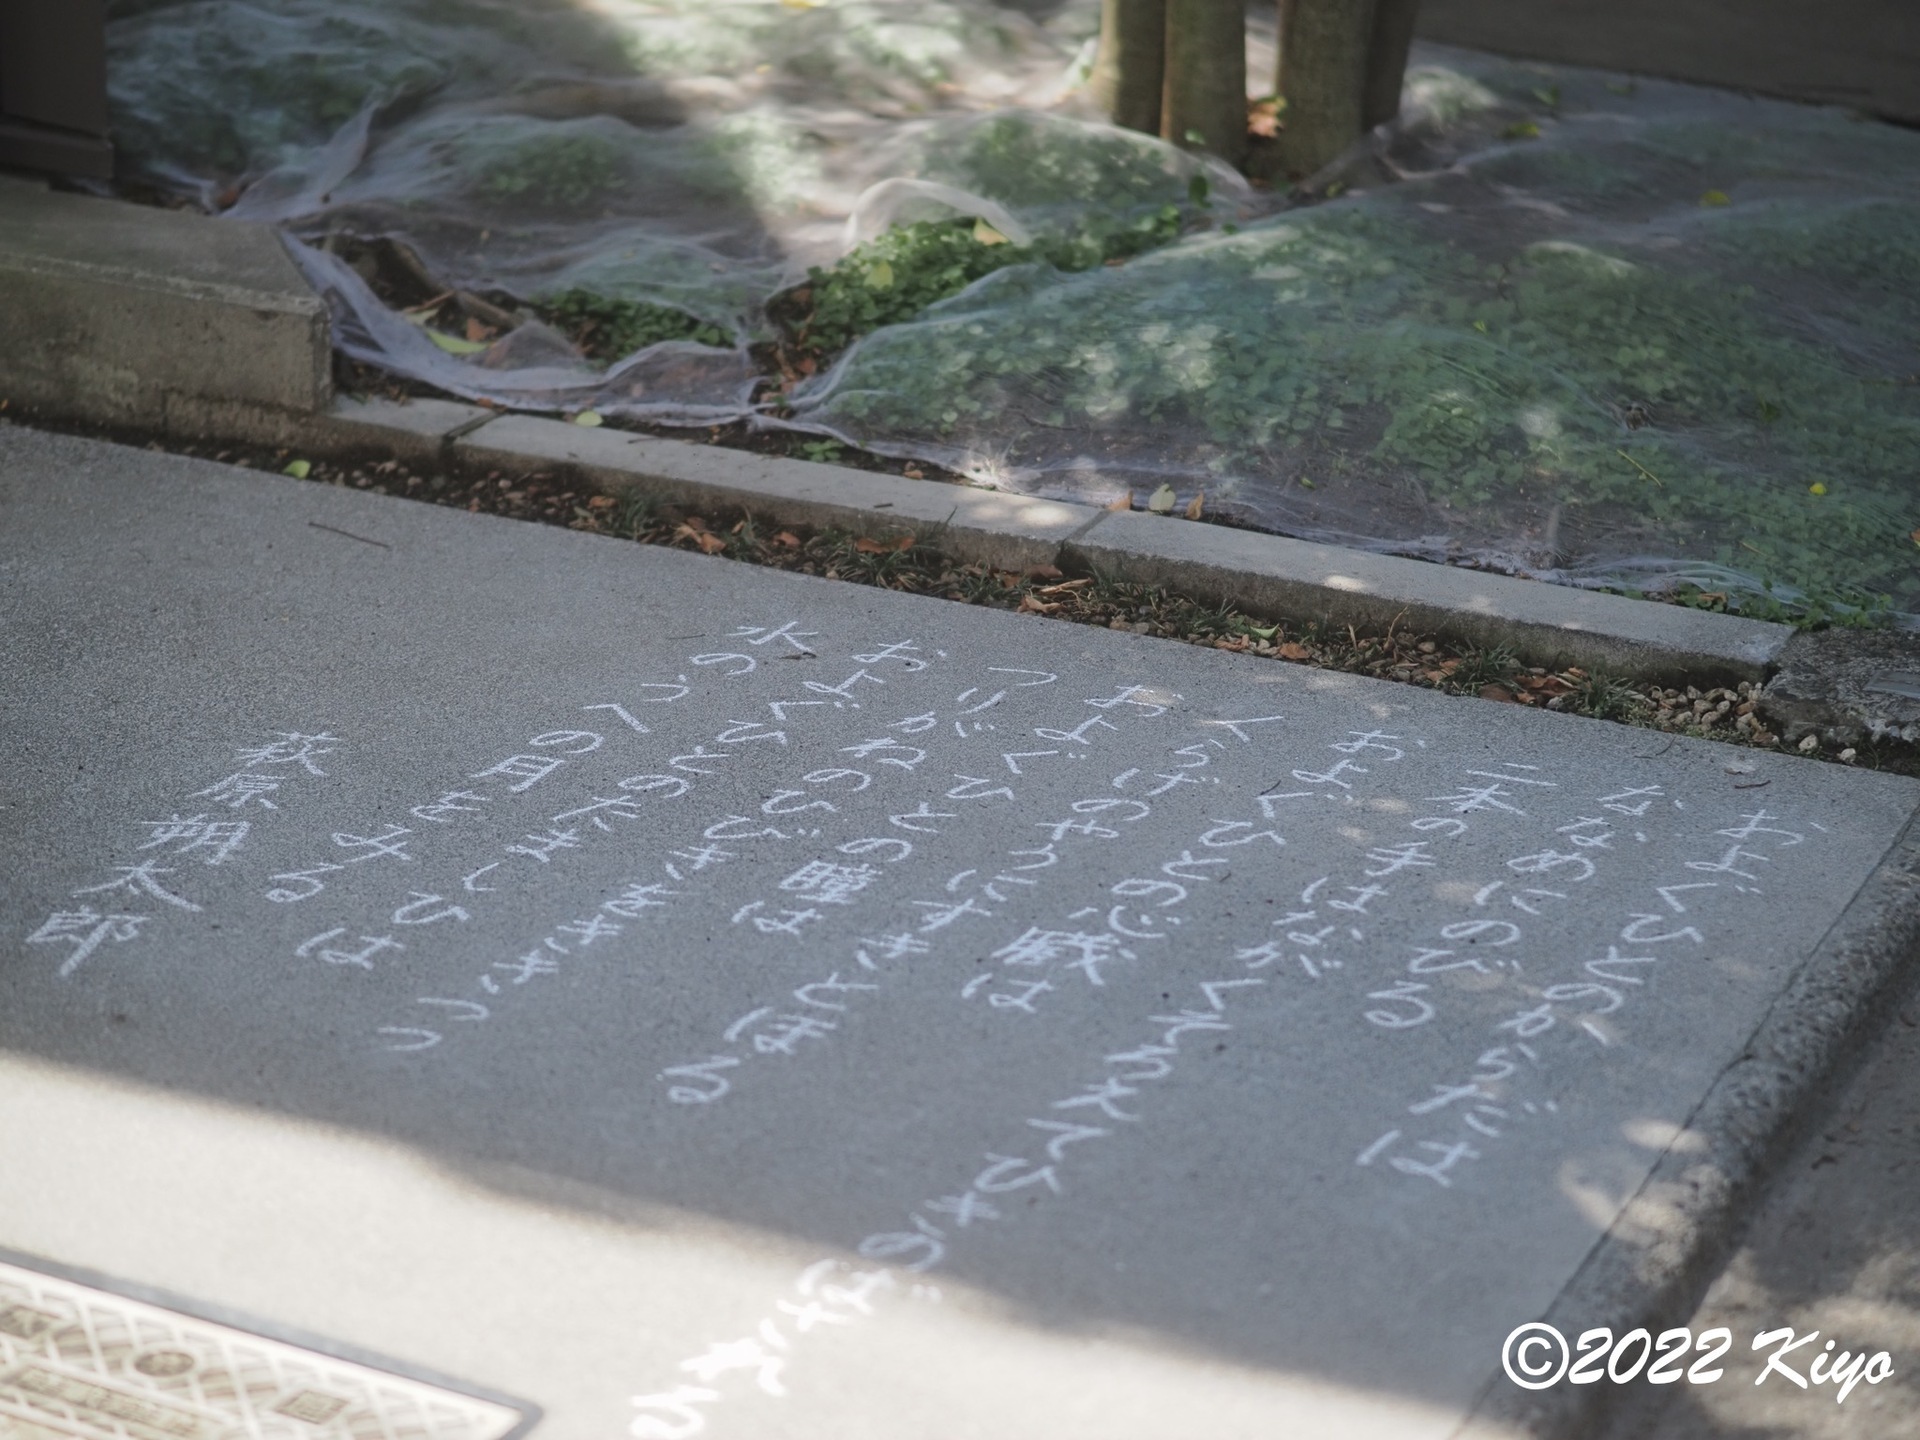 およぐひとのからだは
ななめにのびる
二本の手はながくそろへてひきのばされる
およぐひとの心臓は
くらげのやうにすきとほる
およぐひとの瞳は
つりがねのひびきをききつつ
およぐひとのたましひは
水のうへの月をみる
萩原朔太郎
©2022 Kiyo